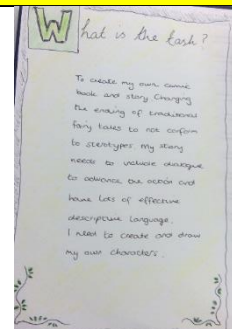 What is the task?
To create my own comic
book and story. Changing
the ending of traditional
fairy tales to not conform
to stereotypes. My story
needs to include dialogue
to advance the action and
have lots of effective
descriptive language.
I need to create and draw
my own characters.